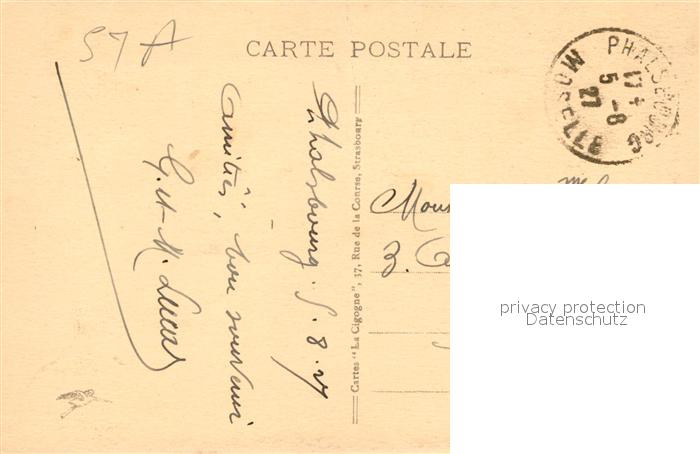 57 A
CARTE POSTALE
PHALSBOURG
17 +
5 -8
27
MOSELLE
Phalsbourg. 5.8.27
Amitiés, bon souvenir
G. et M.
Cartes "La Cigogne", 37, Rue de la Course, Strasbourg
3.
privacy protection
Datenschutz